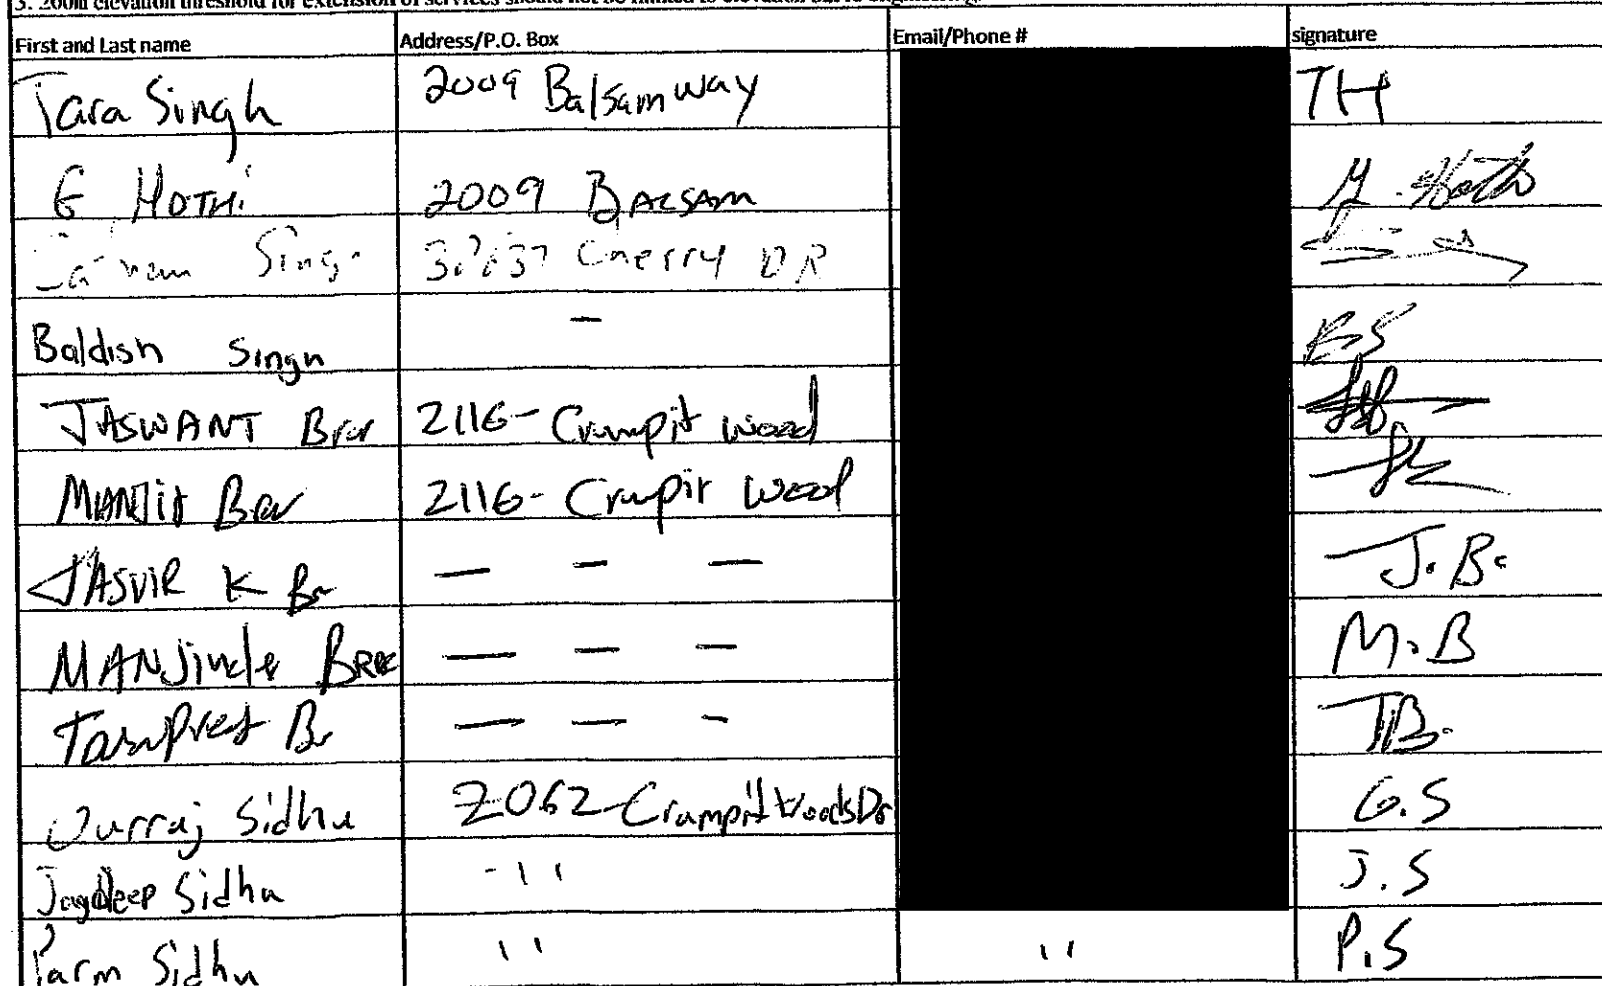 3. 200m elevation threshold for extension of services should not be limited to elevation but to engineering.
First and Last name Address/P.O. Box Email/Phone # signature
Tara Singh 2009 Balsam way TH
G HOTHi 2009 BALSAM
Singh Cherry DR
Baldish Singh — B.S
JASWANT Brar 2116- Crumpit wood
MANJit Brar 2116- Crumpit Wood
JASVIR K Br — — — J. B.
MANJinder BRAR — — — M.B
Taranpreet Br — — - T.B.
Gurraj Sidhu 2062-Crumpit Woods Dr G.S
Jagdeep Sidhu - 11 J.S
Parm Sidhu 11 11 P.S